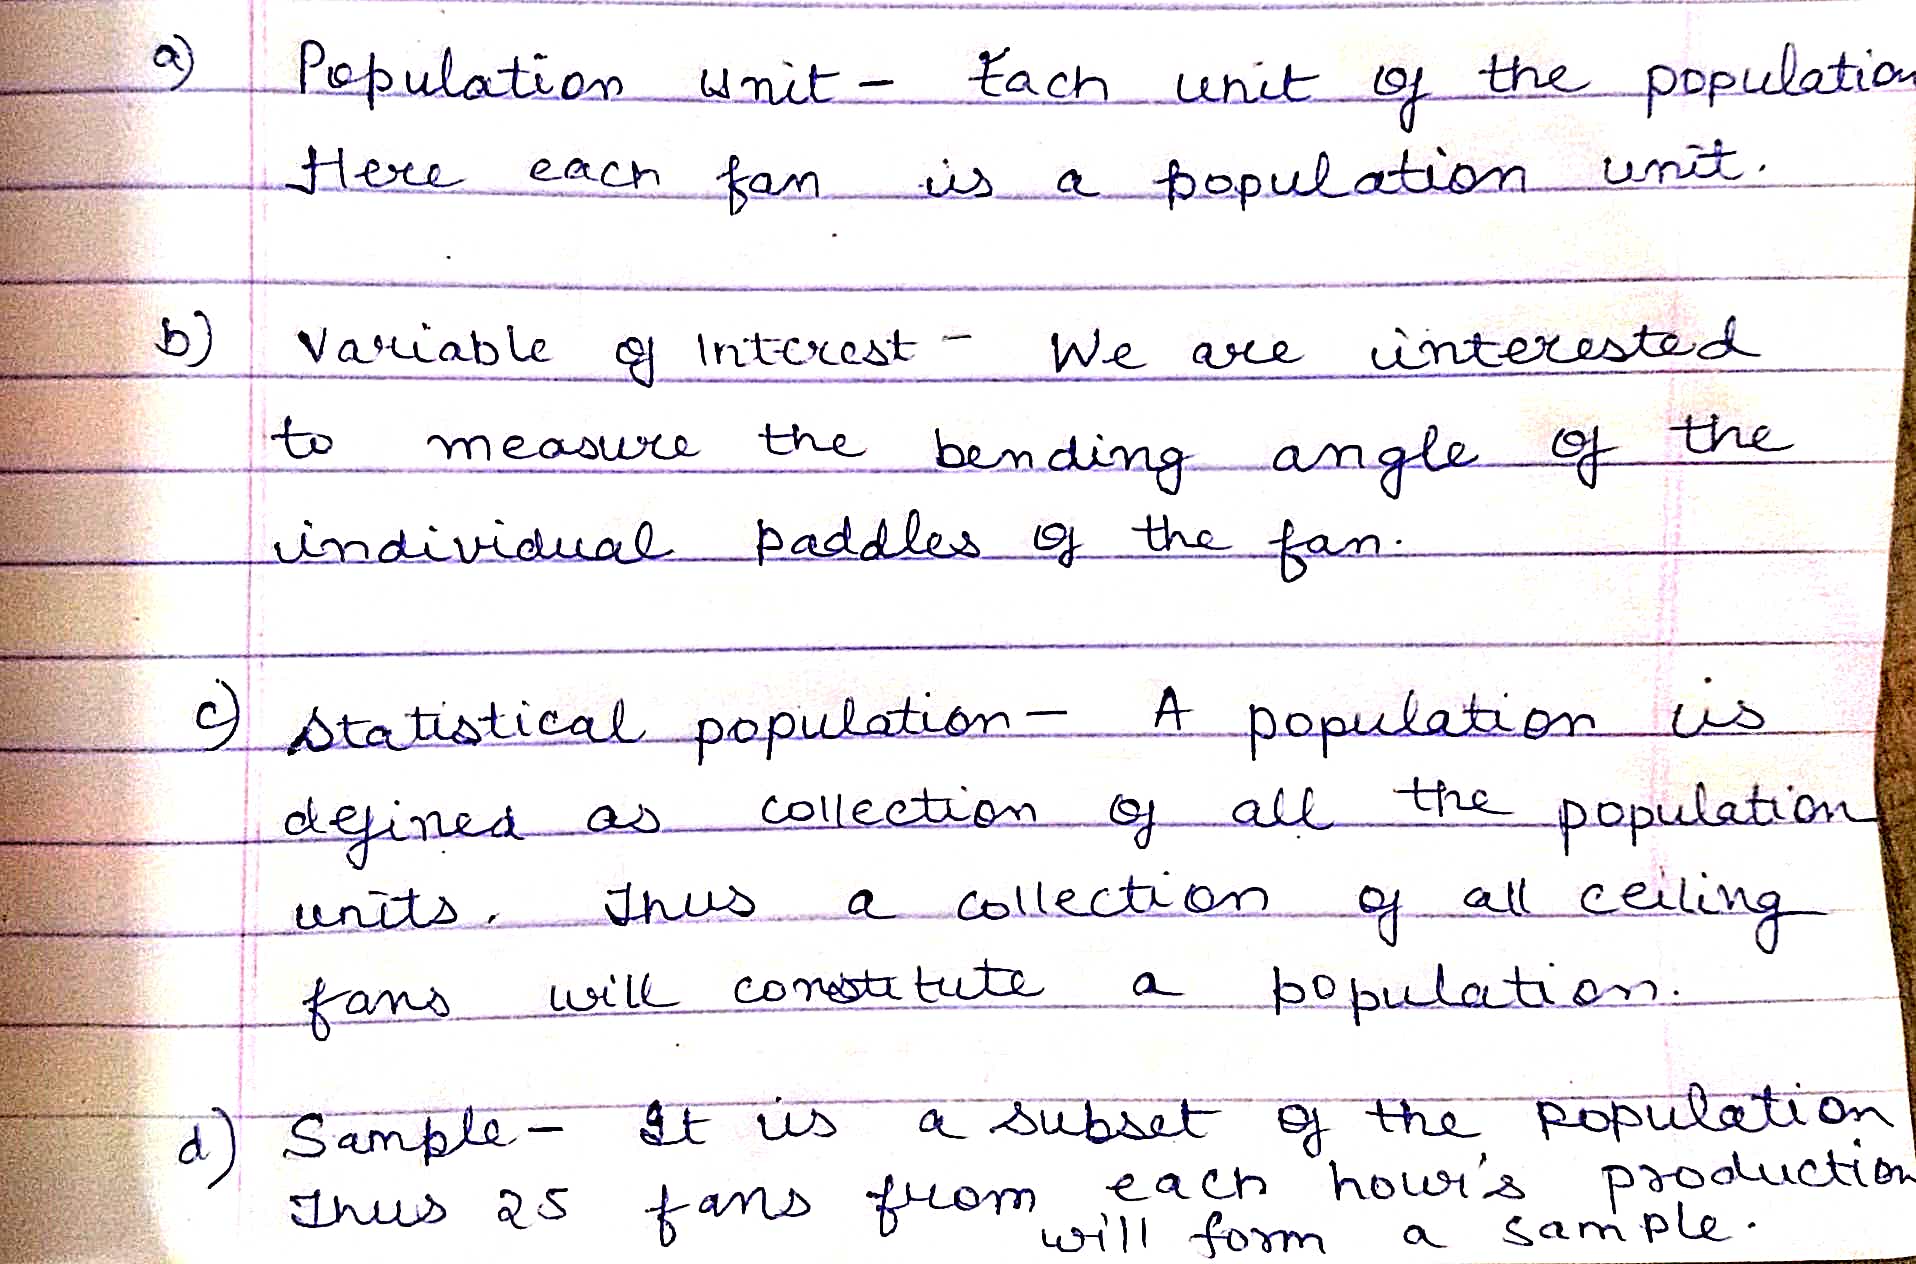 a) Population unit - Each unit of the population
Here each fan is a population unit.
b) Variable of Interest - We are interested
to measure the bending angle of the
individual paddles of the fan.
c) Statistical population - A population is
defined as collection of all the population
units. Thus a collection of all ceiling
fans will constitute a population.
d) Sample - It is a subset of the population
Thus 25 fans from each hour's production
will form a sample.